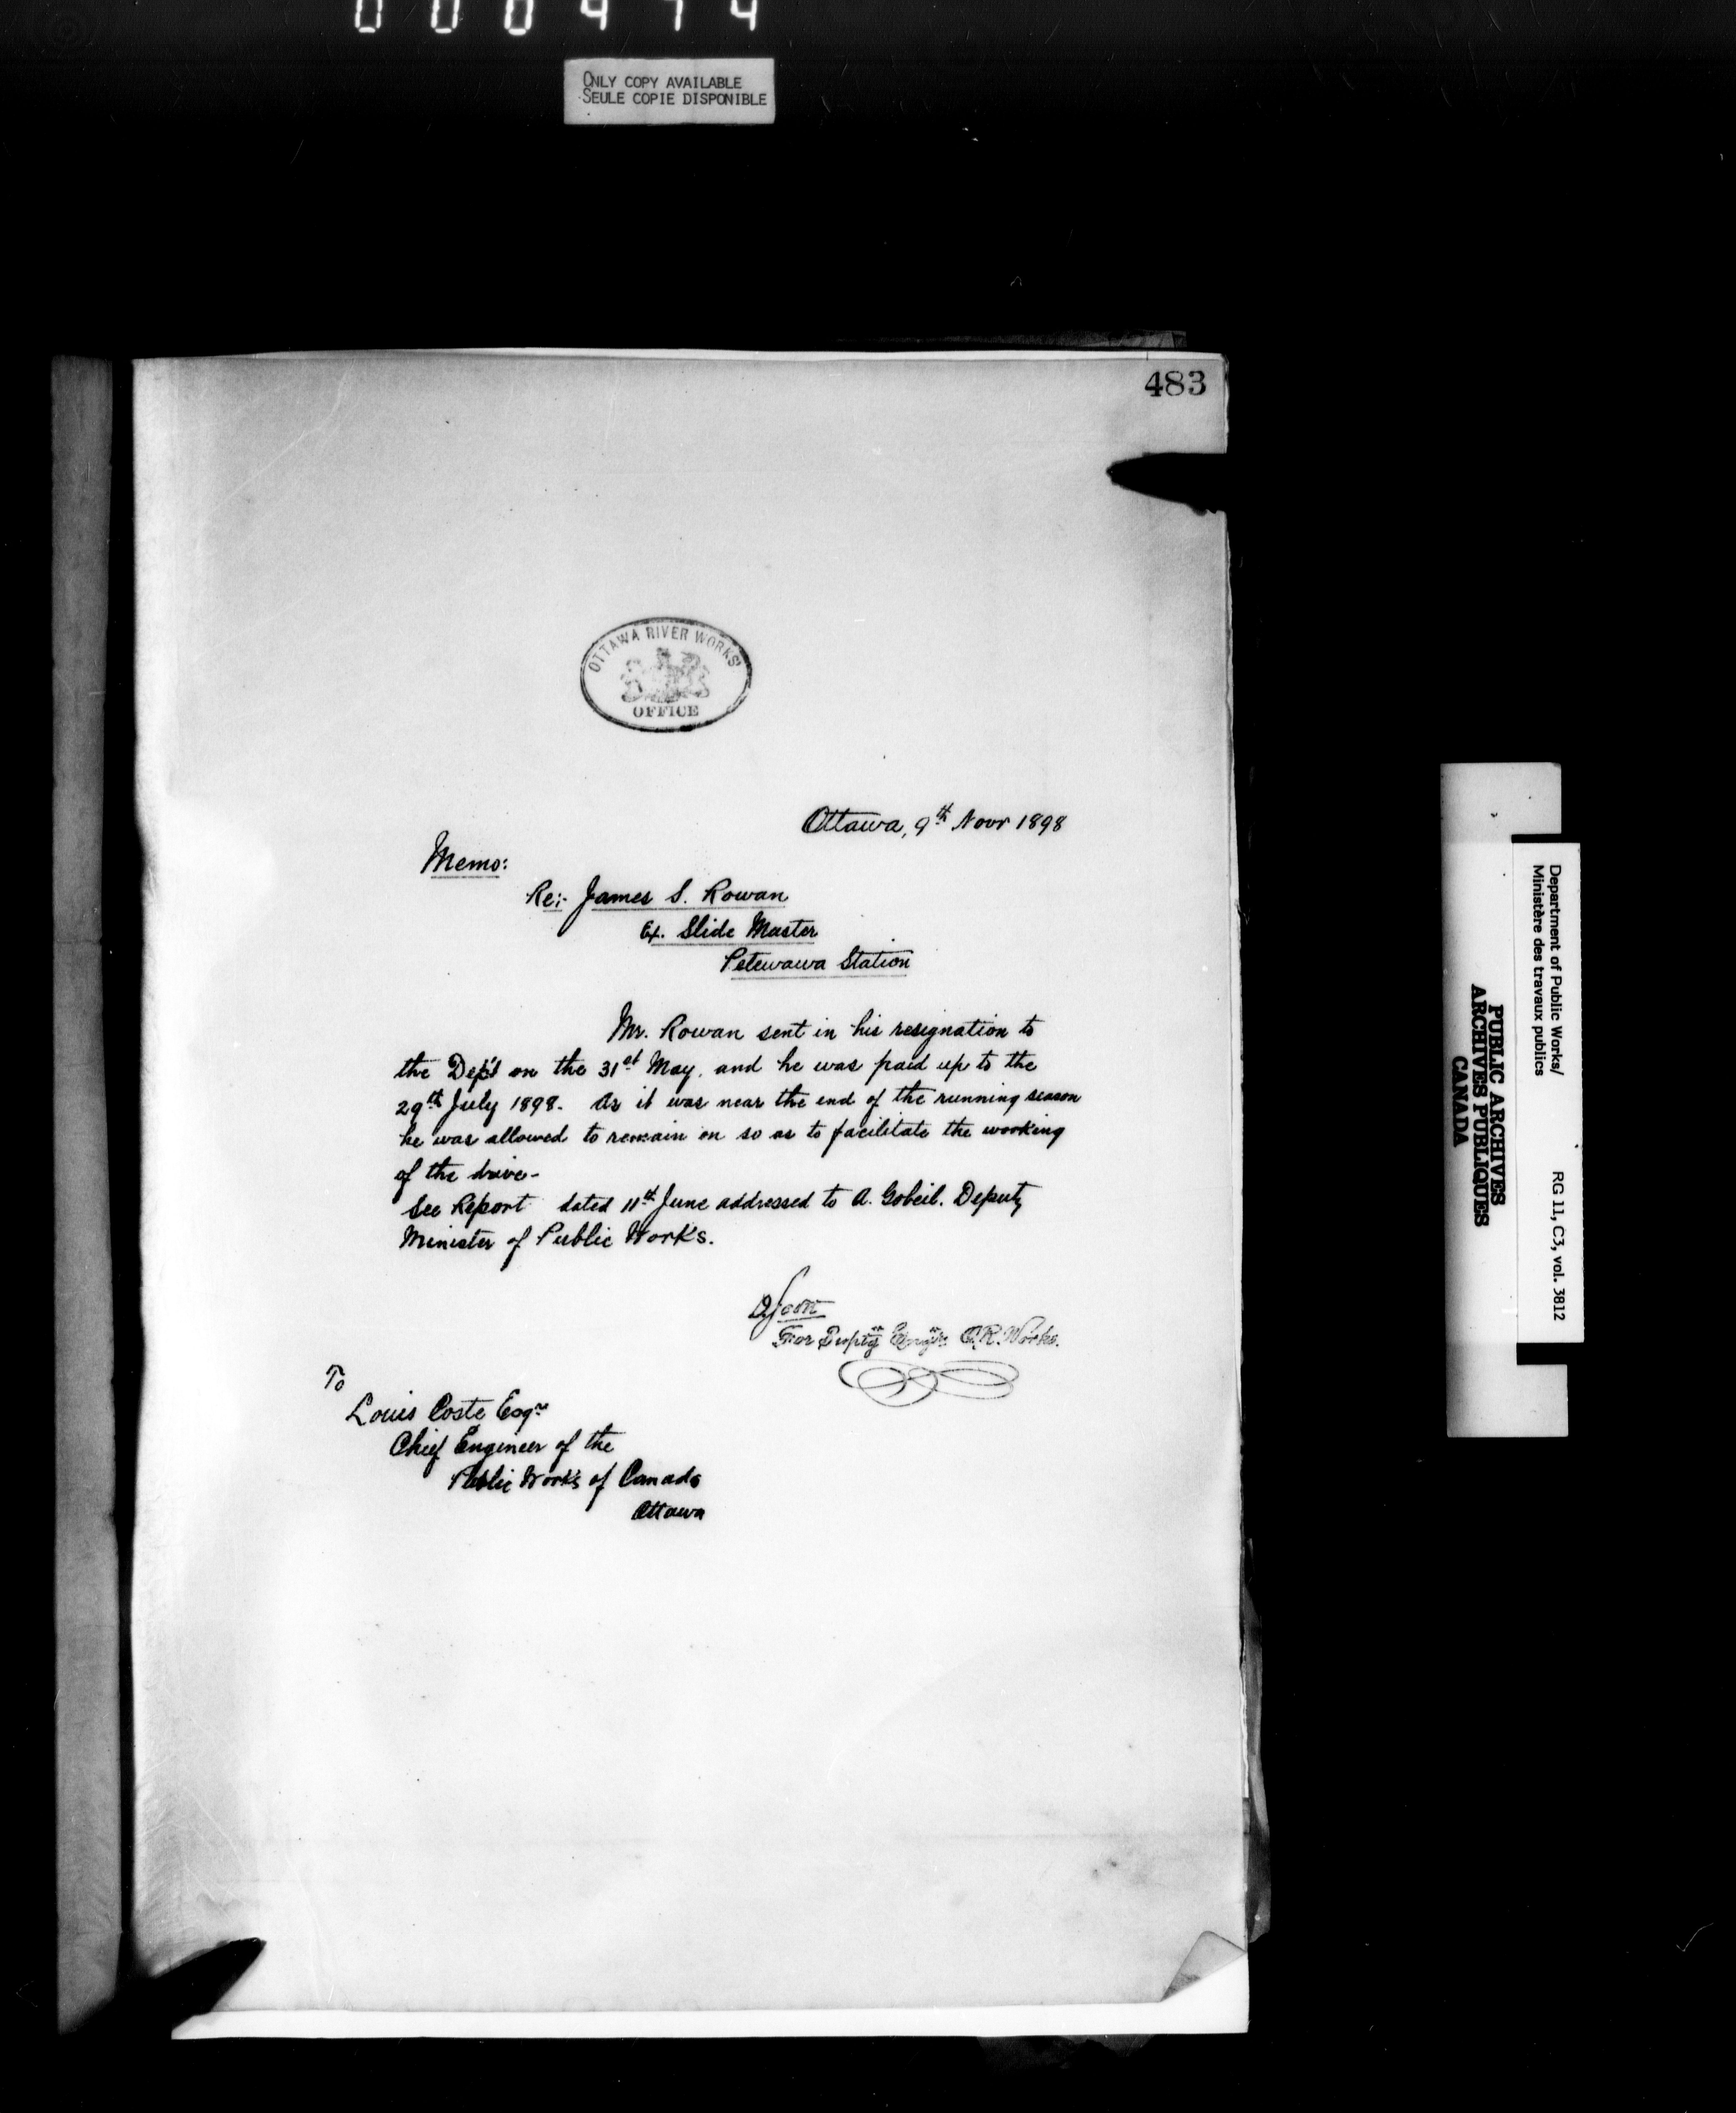 ONLY COPY AVAILABLE
SEULE COPIE DISPONIBLE
483
OTTAWA RIVER WORKS'
OFFICE
Ottawa, 9th Novr 1898
Memo:
Re:- James S. Rowan
Ex. Slide Master
Petewawa Station
Mr. Rowan sent in his resignation to
the Dep't on the 31st May, and he was paid up to the
29th July 1898. As it was near the end of the running season
he was allowed to remain on so as to facilitate the working
of the drive-
See Report dated 11th June addressed to A. Gobeil. Deputy
Minister of Public Works.
For Dupty Engr. O.R. Works.
To
Louis Coste Esqre
Chief Engineer of the
Public Works of Canada
Ottawa
Department of Public Works/
Ministère des travaux publics
RG 11, C3, vol. 3812
PUBLIC ARCHIVES
ARCHIVES PUBLIQUES
CANADA